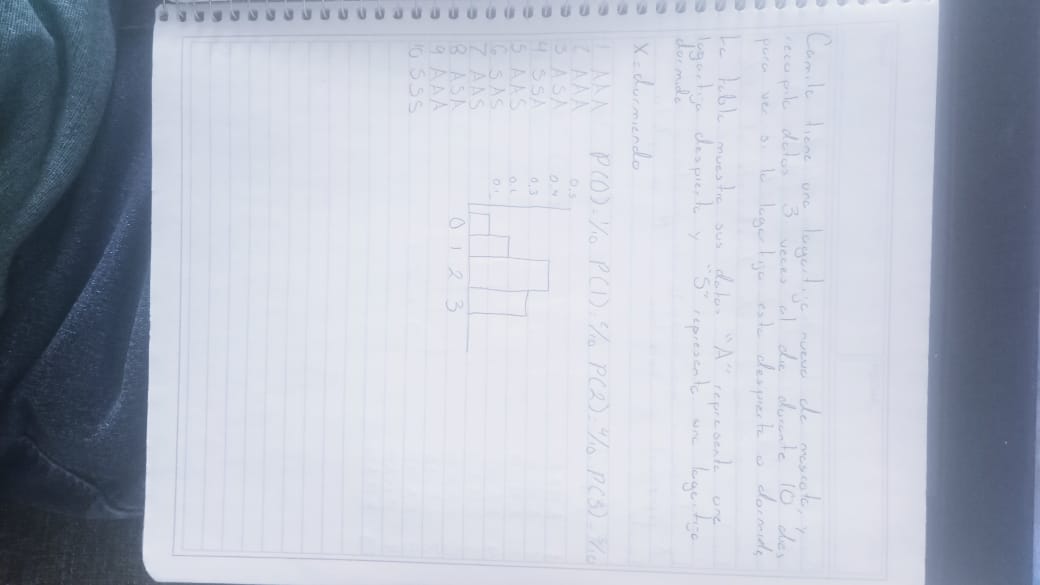 Camila tiene una lagartija nueva de mascota, y
recopila datos 3 veces al dia durante 10 dias
para ver si la lagartija esta despierta o dormida
La tabla muestra sus datos "A" representa una
lagartija despierta y "S" representa una lagartija
dormida
X=durmiendo
1 AAA P(0)=1/10 P(1)=2/10 P(2)=4/10 P(3)=3/10
2 AAA
3 ASA
4 SSA
5 AAS
6 SAS
7 AAS
8 ASA
9 AAA
10 SSS
0.5
0.4
0.3
0.2
0.1
0 1 2 3